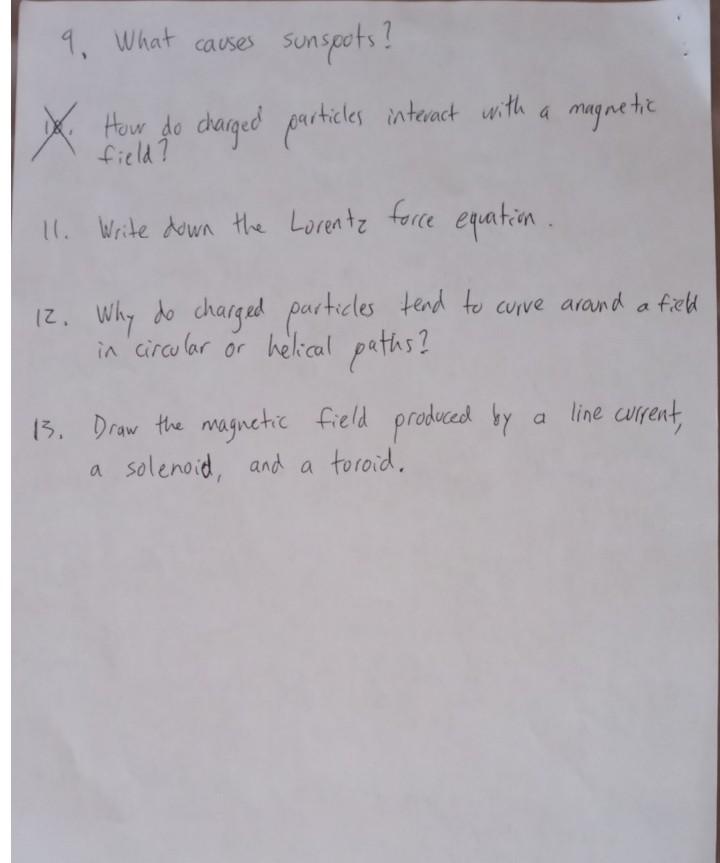 9. What causes sunspots?
10. How do charged particles interact with a magnetic
field?
11. Write down the Lorentz force equation.
12. Why do charged particles tend to curve around a field
in circular or helical paths?
13. Draw the magnetic field produced by a line current,
a solenoid, and a toroid.